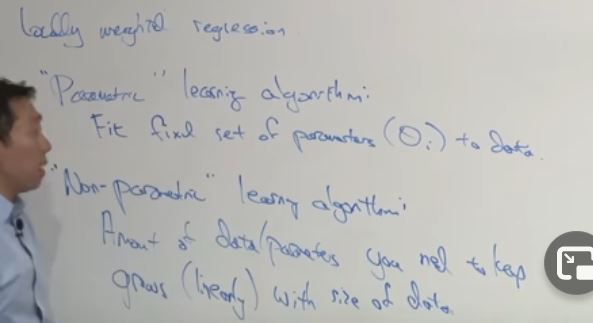 Locally weighted regression
"Parametric" learning algorithm:
Fit fixed set of parameters (θi) to data.
"Non-parametric" learning algorithm:
Amount of data/parameters you need to keep
grows (linearly) with size of data.